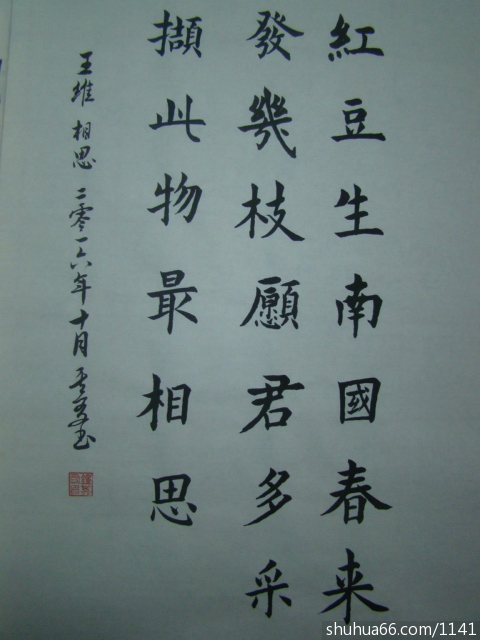 紅豆生南國春来
發幾枝願君多采
擷此物最相思
王維 相思 二零一六年十月
shuhua66.com/1141